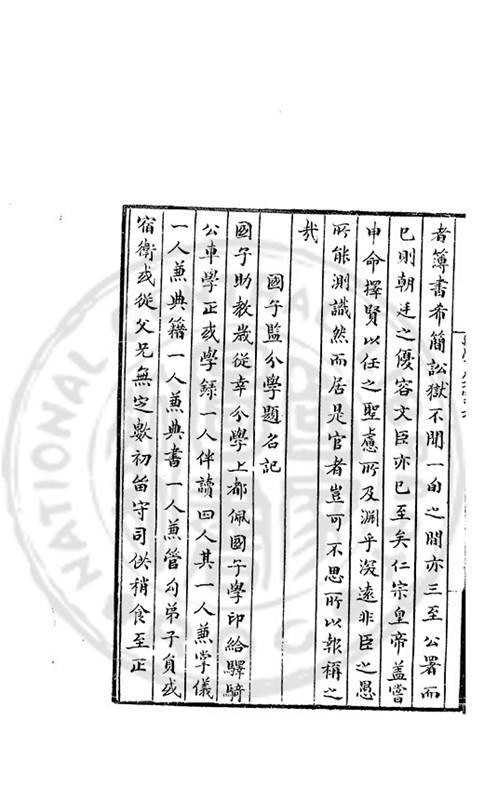 者簿書希簡訟獄不聞一旬之間亦三至公署而
已則朝廷之優容文臣亦已至矣仁宗皇帝盖嘗
申命擇賢以任之聖慮所及淵乎深遠非臣之愚
所能測識然而居是官者豈可不思所以報稱之
哉
國子監分學題名記
國子助教歲從幸分學上都佩國子學印給驛騎
公車學正或學錄一人伴讀四人其一人兼掌儀
一人兼典籍一人兼典書一人兼管勾弟子員或
宿衛或從父兄無定數初留守司供稍食至正
NATIONAL CENTRAL